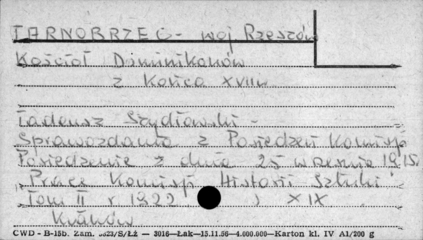 TARNOBRZEG - woj Rzeszów
Kościół Dominikanów
z końca XVII w
Tadeusz Szydłowski -
Sprawozdania z Posiedzeń Komisji
Posiedzenie z dnia 25 września 1915
Prace Komisji Historii Sztuki
Tom II r 1922 , XIX
Kraków
CWD - B-15b. Zam. /S/Łż — 3016—Łak—15.11.56—4.000.000—Karton kl. IV A1/200 g